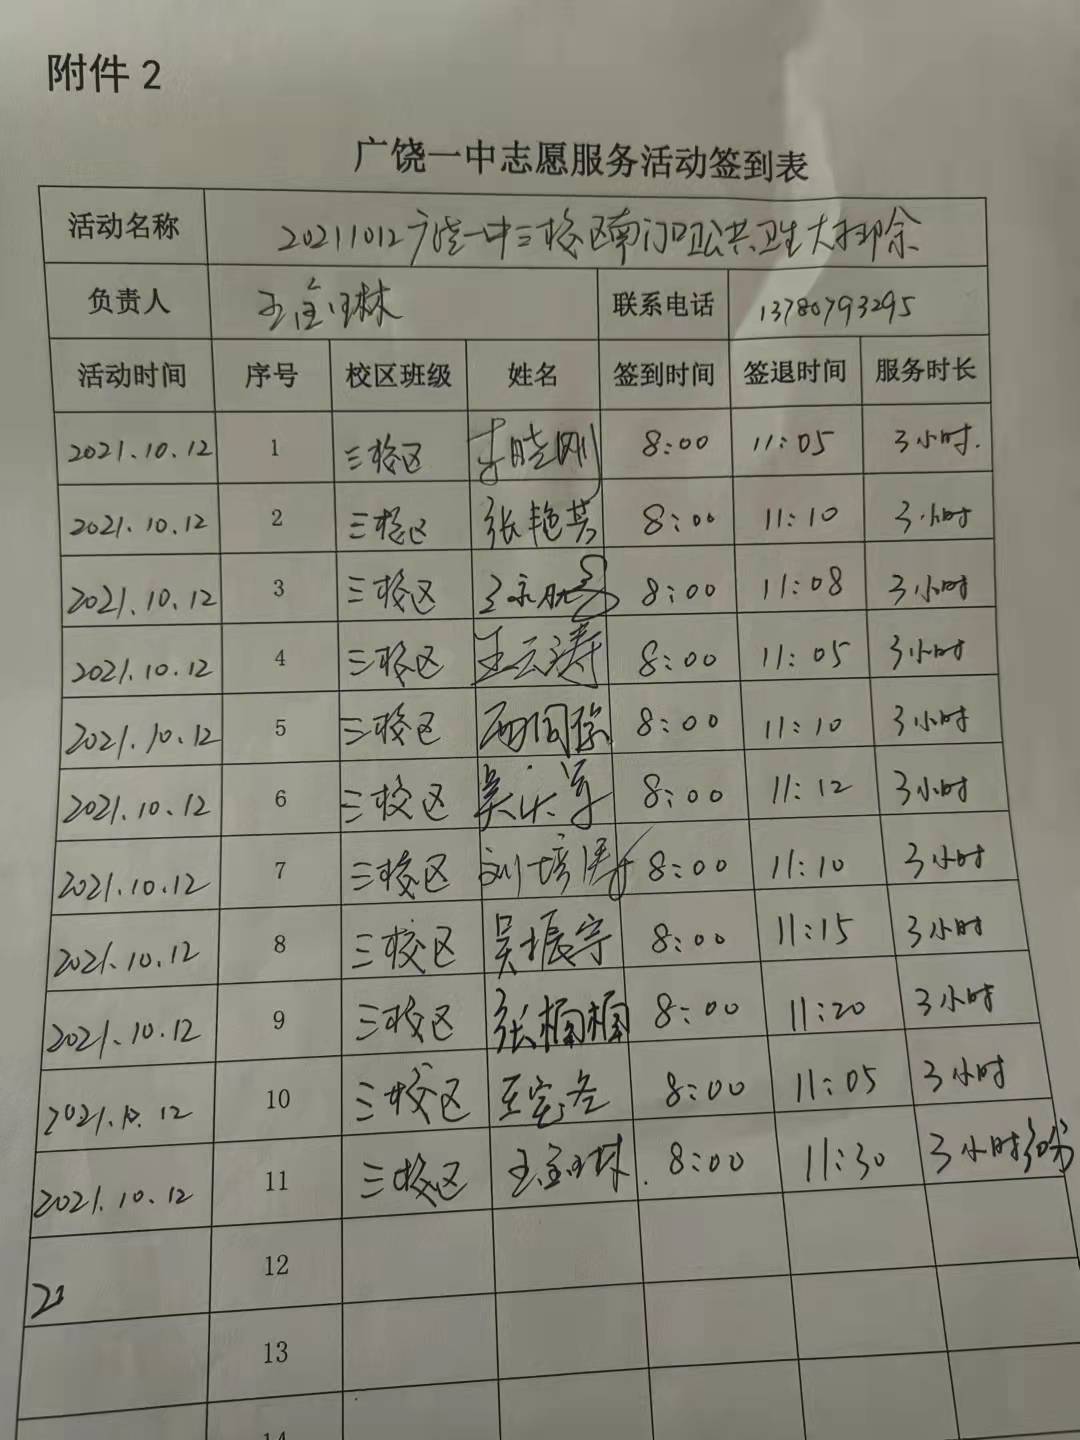 附件 2
广饶一中志愿服务活动签到表
活动名称 20211012广饶一中三校区南门口公共卫生大扫除
负责人 联系电话 13780793295
活动时间 序号 校区班级 姓名 签到时间 签退时间 服务时长
2021.10.12 1 三校区 李晓刚 8:00 11:05 3小时.
2021.10.12 2 三校区 张艳芳 8:00 11:10 3小时
2021.10.12 3 三校区 8:00 11:08 3小时
2021.10.12 4 三校区 王云涛 8:00 11:05 3小时
2021.10.12 5 三校区 8:00 11:10 3小时
2021.10.12 6 三校区 8:00 11:12 3小时
2021.10.12 7 三校区 刘培涛 8:00 11:10 3小时
2021.10.12 8 三校区 吴振宇 8:00 11:15 3小时
2021.10.12 9 三校区 张楠楠 8:00 11:20 3小时
2021.10.12 10 三校区 8:00 11:05 3小时
2021.10.12 11 三校区 8:00 11:30 3小时30分
12
13
14